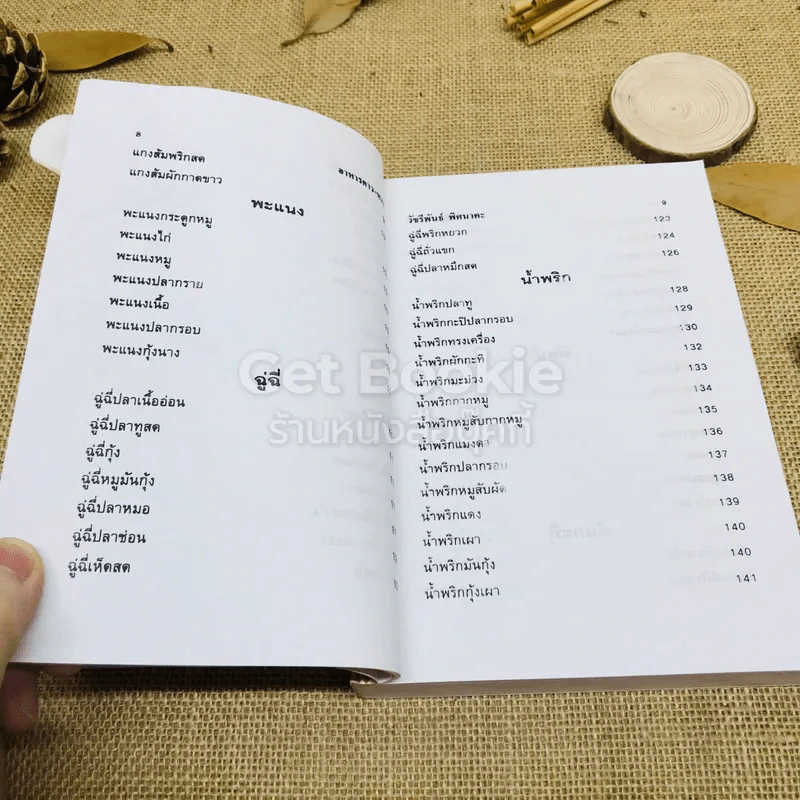 8
อาหารคาว-หวาน
แกงส้มพริกสด
แกงส้มผักกาดขาว
พะแนง
พะแนงกระดูกหมู
พะแนงไก่
พะแนงหมู
พะแนงปลากราย
พะแนงเนื้อ
พะแนงปลากรอบ
พะแนงกุ้งนาง
ฉู่ฉี่
ฉู่ฉี่ปลาเนื้ออ่อน
ฉู่ฉี่ปลาทูสด
ฉู่ฉี่กุ้ง
ฉู่ฉี่หมูมันกุ้ง
ฉู่ฉี่ปลาหมอ
ฉู่ฉี่ปลาช่อน
ฉู่ฉี่เห็ดสด
วัชรีพันธ์ พิศนาคะ 9
ฉู่ฉี่พริกหยวก 123
ฉู่ฉี่ถั่วแขก 124
ฉู่ฉี่ปลาหมึกสด 126
น้ำพริก
น้ำพริกปลาทู 128
น้ำพริกกะปิปลากรอบ 129
น้ำพริกทรงเครื่อง 130
น้ำพริกผักกะทิ 132
น้ำพริกมะม่วง 133
น้ำพริกกากหมู 134
น้ำพริกหมูสับกากหมู 135
น้ำพริกแมงดา 136
น้ำพริกปลากรอบ 137
น้ำพริกหมูสับผัด 138
น้ำพริกแดง 139
น้ำพริกเผา 140
น้ำพริกมันกุ้ง 140
น้ำพริกกุ้งเผา 141
Get Bookie
ร้านหนังสือบุ๊คกี้